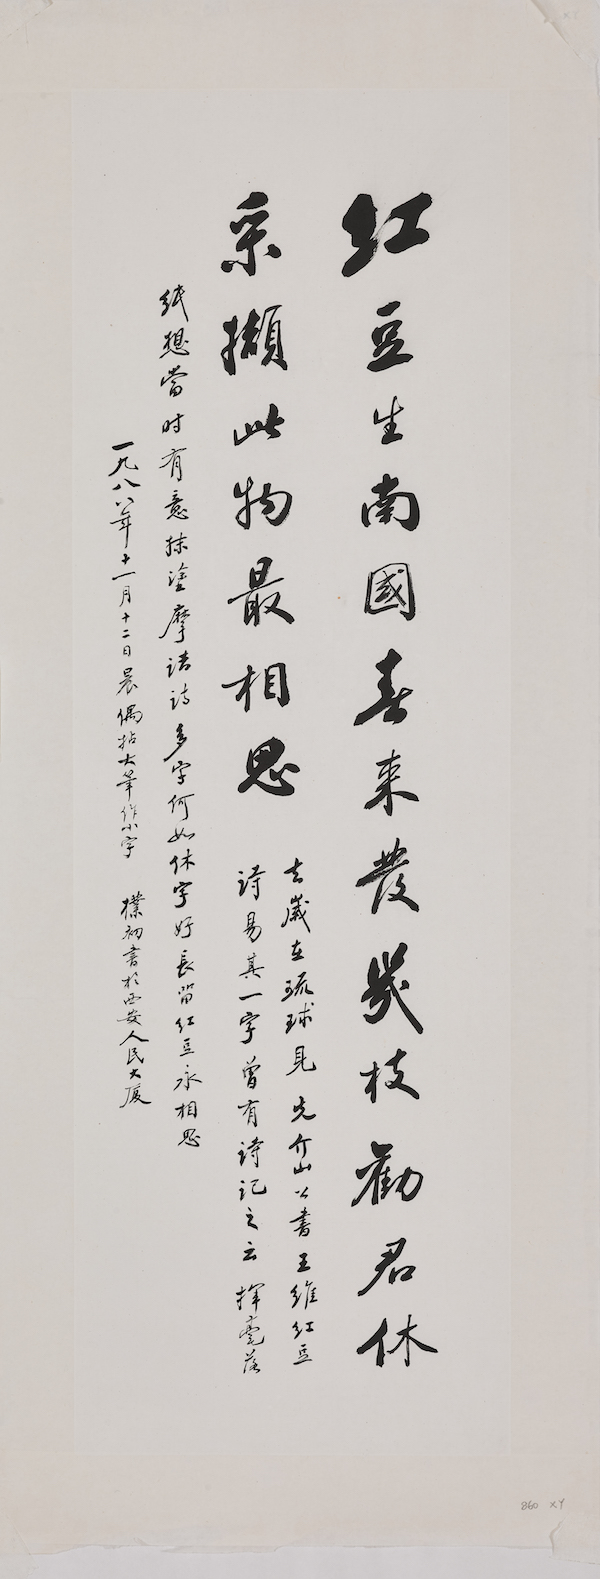 紅豆生南國春來發幾枝勸君休
采擷此物最相思
去歲在琉球見先介山公書王維紅豆
詩易其一字曾有詩記之云揮毫落
紙想當时有意抹塗摩詰詩多字何如休字好長留紅豆永相思
一九八八年十一月十二日晨偶拈大筆作小字 樸初書於西安人民大廈
860 XY
XY